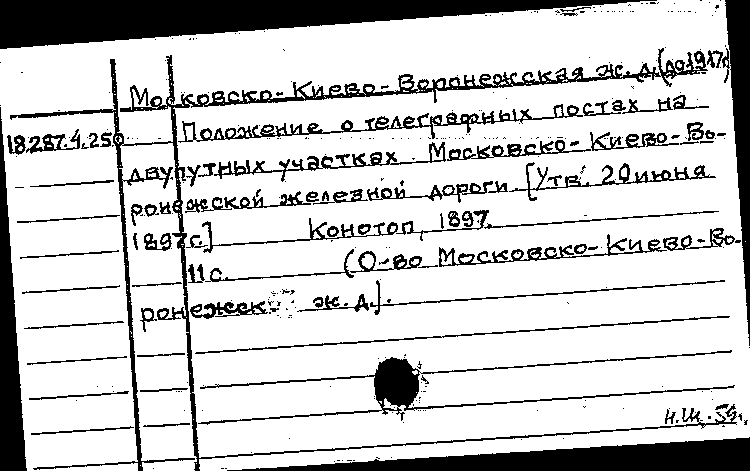 Московско-Киево-Воронежская ж.д. (до 1917г)
18.287.4.250 Положение о телеграфных постах на
двупутных участках Московско-Киево-Во-
ронежской железной дороги [Утв. 20 июня
1897г.] Конотоп, 1897.
11с. (О-во Московско-Киево-Во-
ронежск. ж.д.).
Н.Ш.